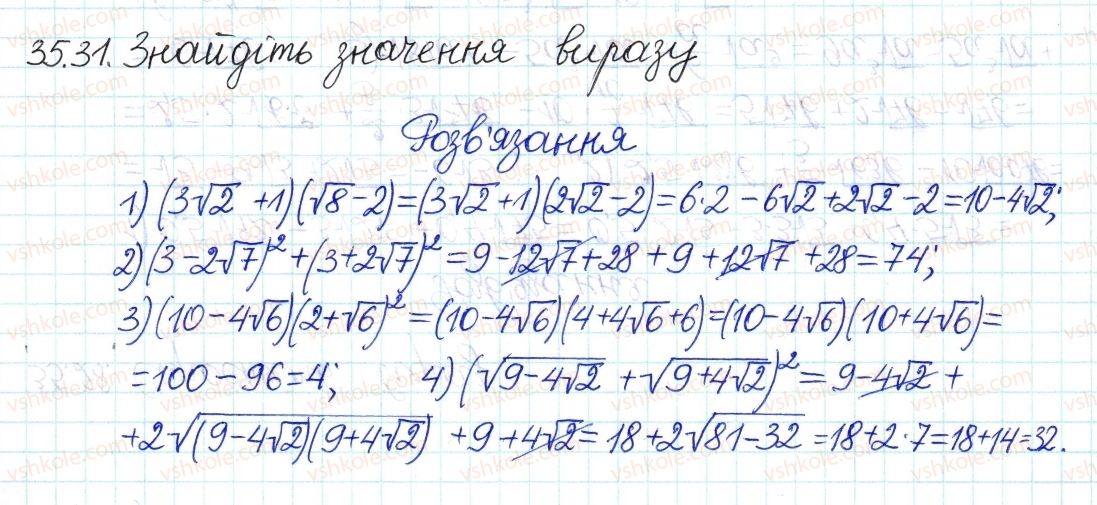 35.31. Знайдіть значення виразу
Розв'язання
1) (3√2 +1)(√8-2)=(3√2+1)(2√2-2)=6·2-6√2+2√2-2=10-4√2;
2) (3-2√7)²+(3+2√7)²=9-12√7+28+9+12√7+28=74;
3) (10-4√6)(2+√6)²=(10-4√6)(4+4√6+6)=(10-4√6)(10+4√6)=
=100-96=4; 4) (√(9-4√2) + √(9+4√2))²=9-4√2+
+2√((9-4√2)(9+4√2)) +9+4√2=18+2√(81-32)=18+2·7=18+14=32.